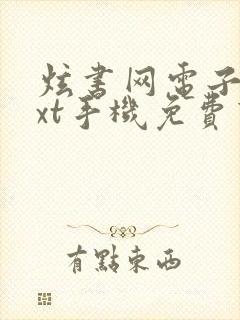 炫书网电子
xt手機免費
有點東西